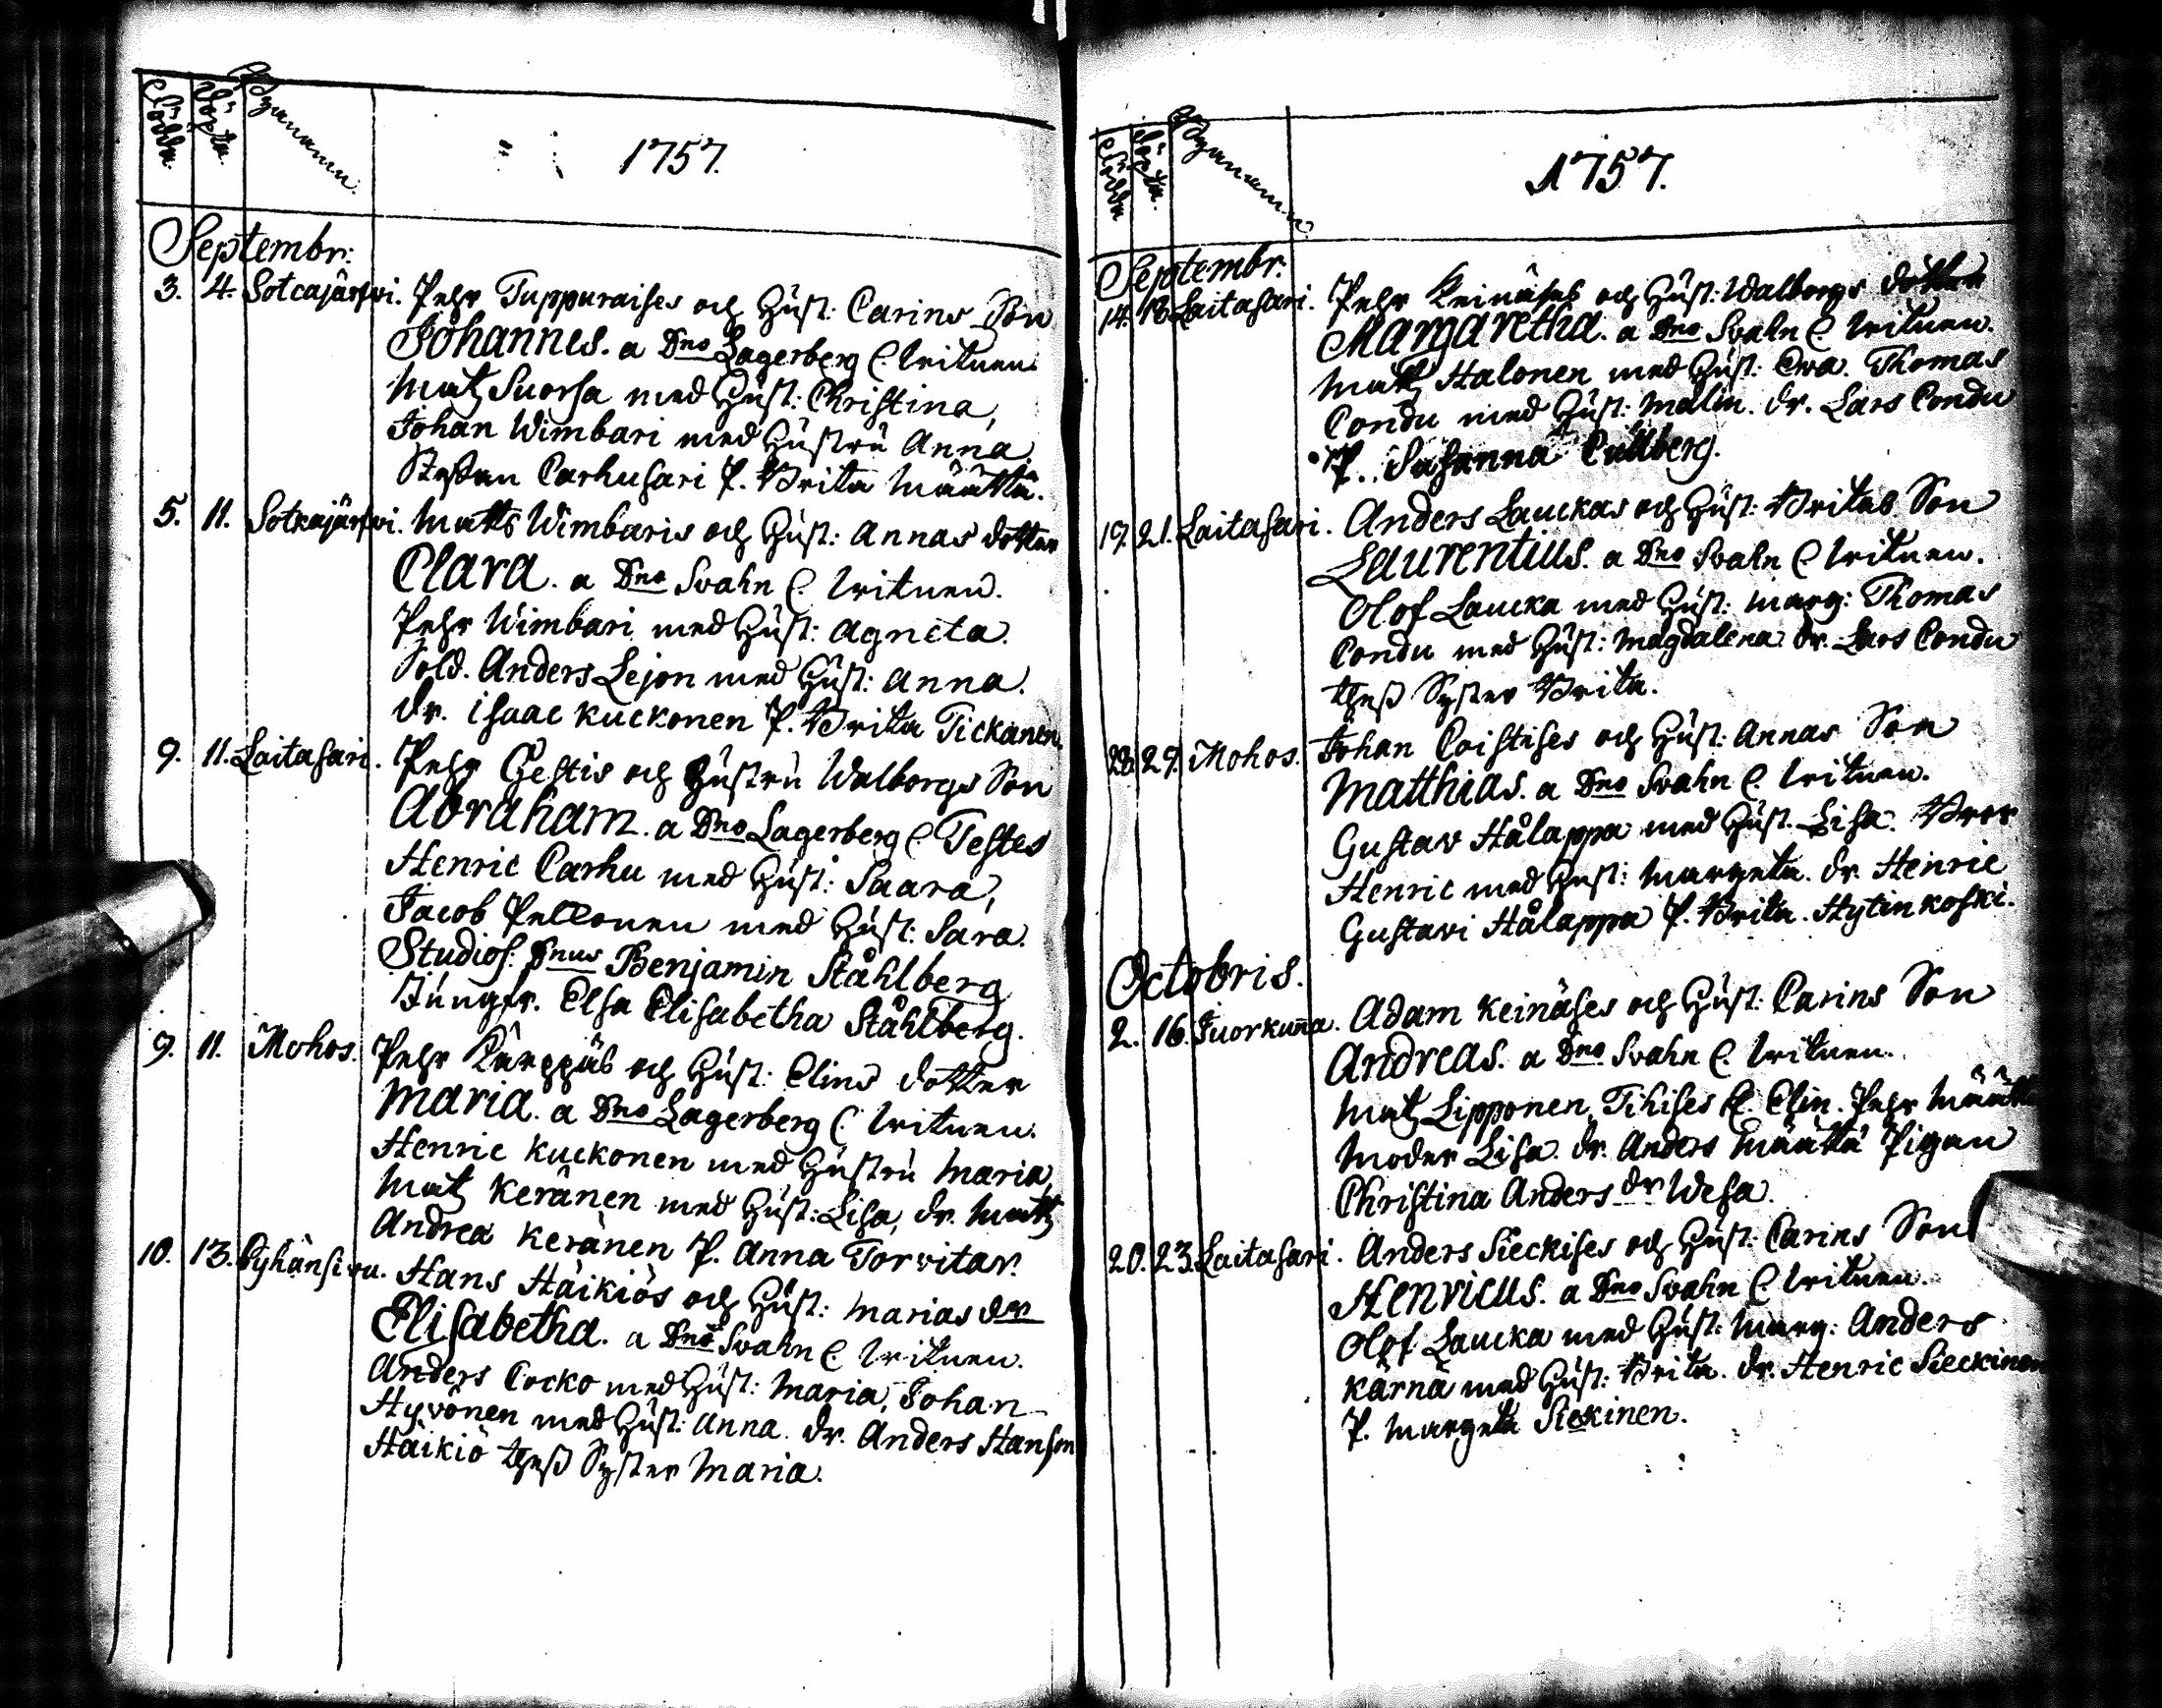 Födda. Döpta. Bynamnen.
1757.
Septembr:
3. 4. Sotcajärfvi. Pehr Tuppuraises och Hust: Carins Son
Johannes. a Dno Lagerberg C. Vitnen
Matz Suorsa med Hust: Christina,
Johan Wimbari med Hustru Anna
Staffan Carhusari P. Brita Määttä.
5. 11. Sotkajärfvi. Matts Wimbaris och Hust: Annas dotter
Clara. a Dno Svahn C. Vitnen.
Pehr Wimbari med Hust: Agneta.
Sold. Anders Lejon med Hust: Anna.
dr. Isaac Kuckonen P. Brita Tickanen.
9. 11. Laitasari. Pehr Hestis och Hustru Walborgs Son
Abraham. a Dno Lagerberg C. Testes
Henric Carhu med Hust: Saara,
Jacob Pellonen med Hust: Sara.
Studios. Dnus Benjamin Ståhlberg
Jungfr. Elsa Elisabetha Ståhlberg.
9. 11. Mohos. Pehr Kärppäs och Hust: Elins dotter
Maria. a Dno Lagerberg C. Vitnen.
Henric Kuckonen med Hustru Maria,
Matz Keränen med Hust: Lisa, dr. Matz
Andrea Keränen P. Anna Torvitar.
10. 13. Pyhänsivu. Hans Häikiös och Hust: Marias dr
Elisabetha. a Dno Svahn C. Vitnen.
Anders Cocko med Hust: Maria, Johan
Hyvönen med Hust: Anna. dr. Anders Hanson
Häikiö thess Syster Maria.
Födda. Döpta. Bynamnen.
1757.
Septembr:
14. 18. Laitasari. Pehr Keinäses och Hust: Walborgs dotter
Margaretha. a Dno Svahn C. Vitnen.
Matz Halonen med Hust: Ewa. Thomas
Condu med Hust: Malin. dr. Lars Condu
P. Susanna Cullberg.
19. 21. Laitasari. Anders Lauckas och Hust: Britas Son
Laurentius. a Dno Svahn C. Vitnen.
Olof Laucka med Hust: Marg: Thomas
Condu med Hust: Magdalena dr. Lars Condu
thess Syster Brita.
28. 29. Mohos. Johan Coistises och Hust: Annas Son
Matthias. a Dno Svahn C. Vitnen.
Gustav Hålappa med Hust. Lisa. Bror
Henric med Hust: Margeta. dr. Henric
Gustavi Hålappa P. Brita. Hytinkoski.
Octobris.
2. 16. Juorkuña. Adam Keinäses och Hust: Carins Son
Andreas. a Dno Svahn C. Vitnen.
Matz Lipponen, Tihises E. Elin. Pehr Määttä
Moder Lisa. dr. Anders Määttä Pigan
Christina Anders dr Wesa.
20. 23. Laitasari. Anders Sieckises och Hust: Carins Son
Henricus. a Dno Svahn C. Vitnen.
Olof Laucka med Hust: Marg: Anders
Kärnä med Hust: Brita. dr. Henric Sieckinen
P. Margeta Siekinen.